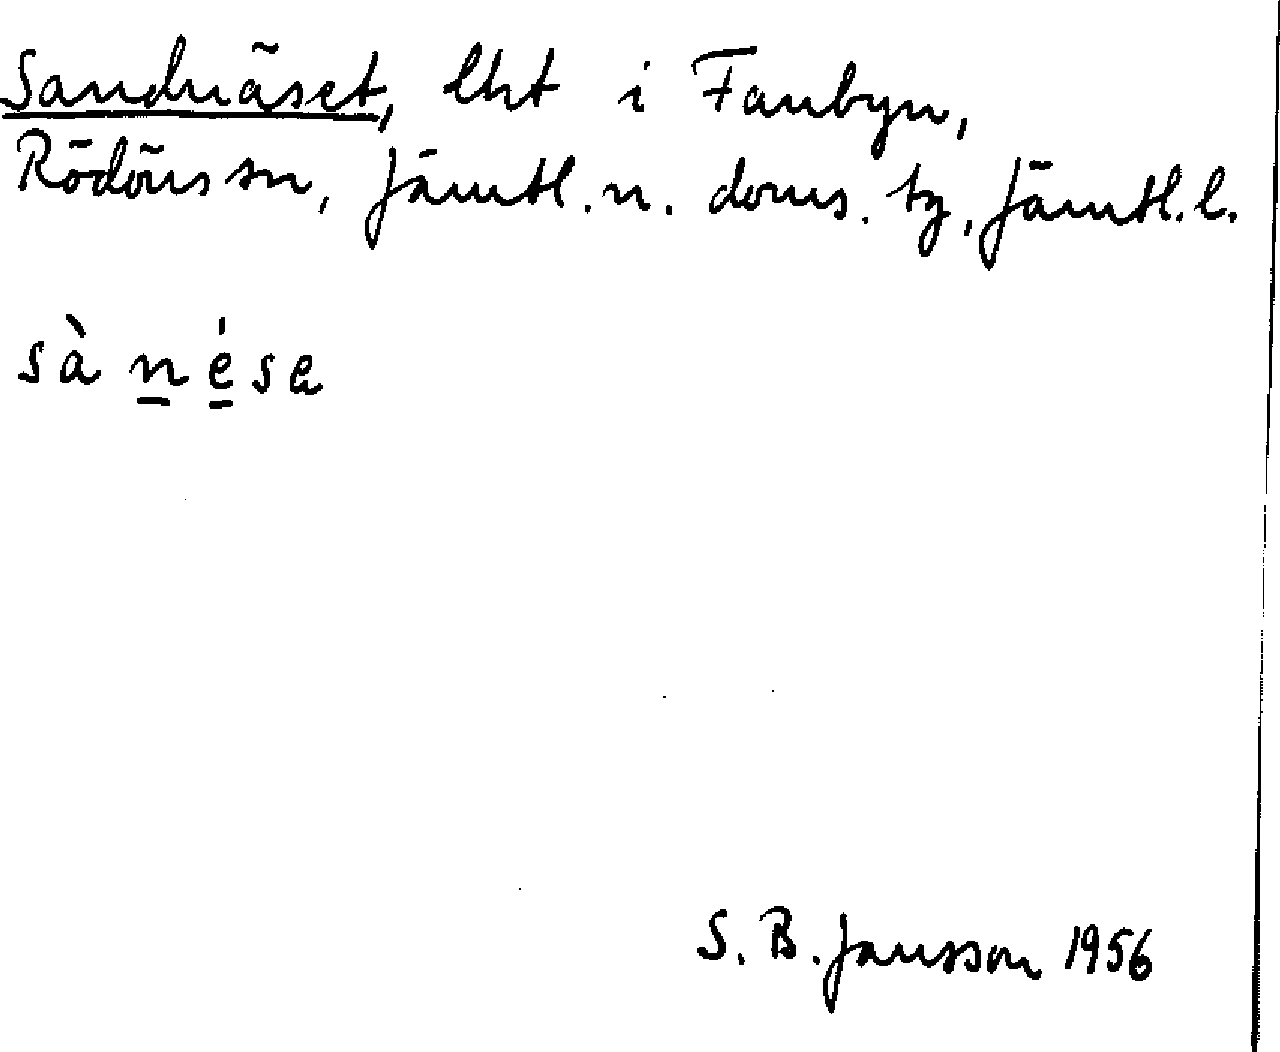 Sandnäset, lht i Fanbyn,
Rödöns sn, Jämtl. n. doms. tg, Jämtl. l.
sà n̲é̲se
S. B. Jansson 1956